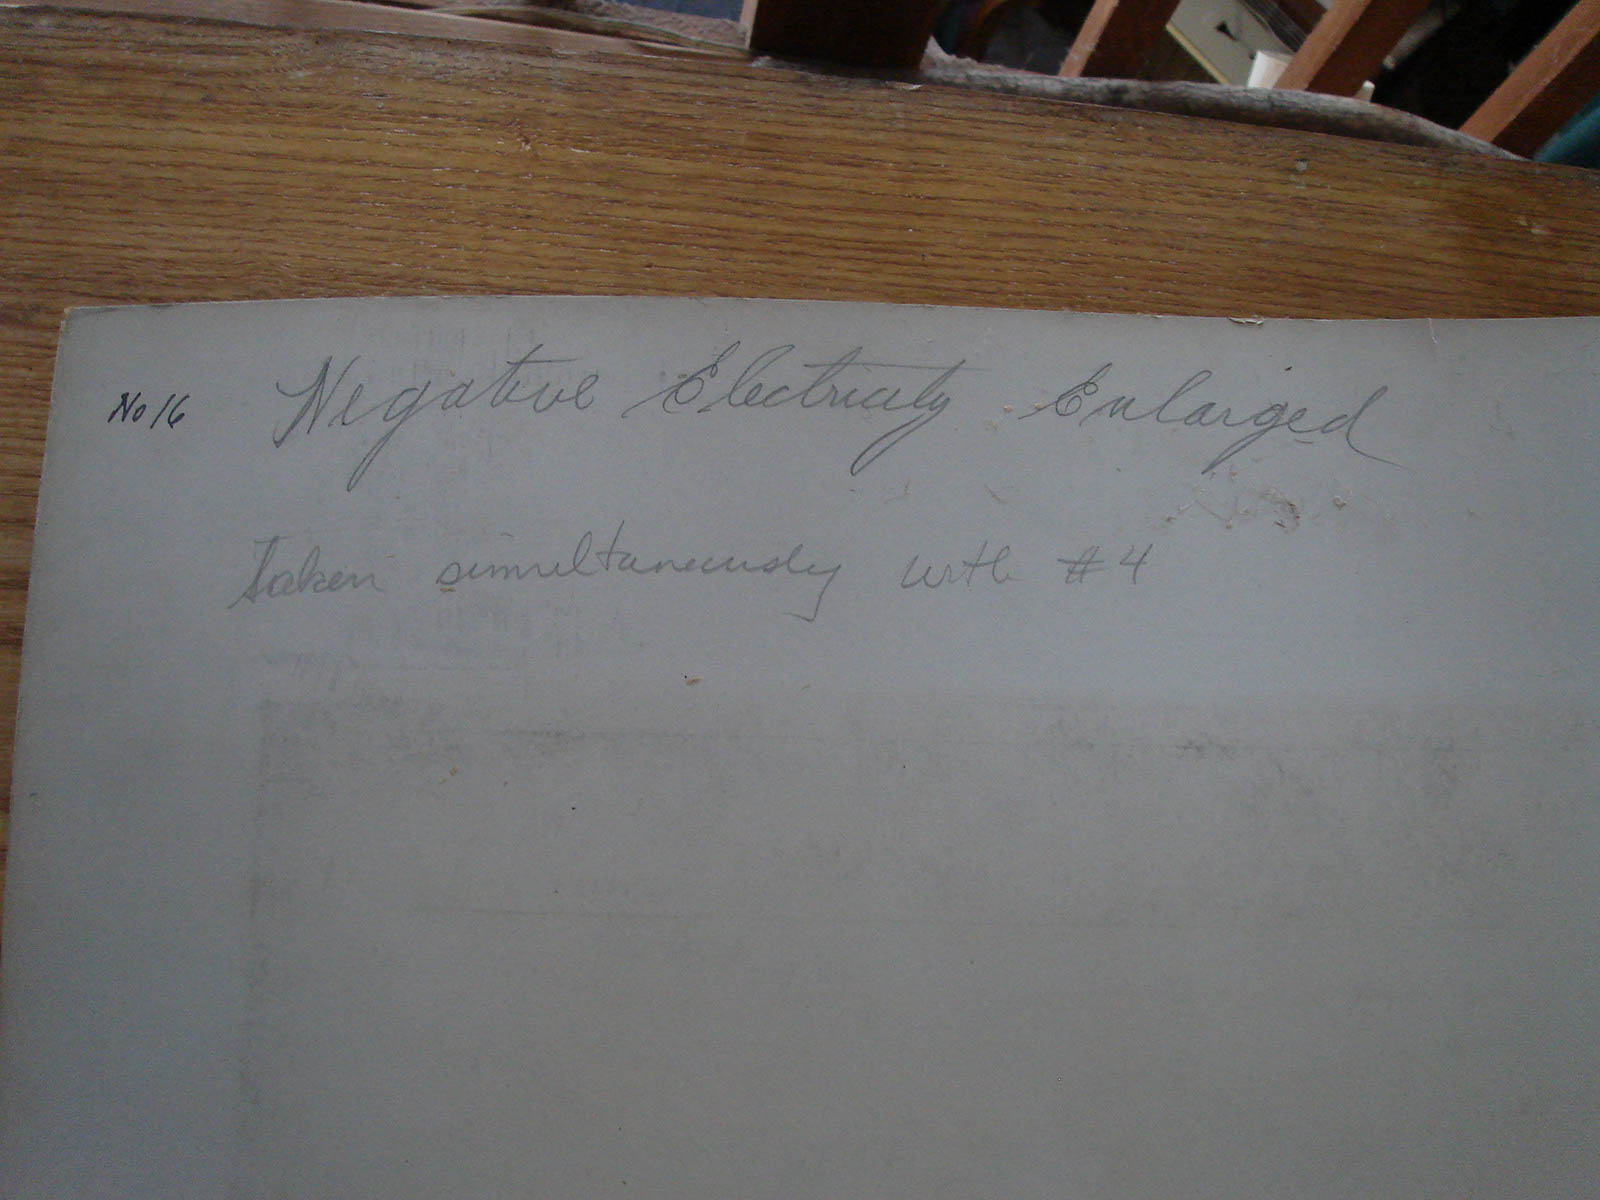 No 16 Negative Electricity Enlarged
taken simultaneously with #4